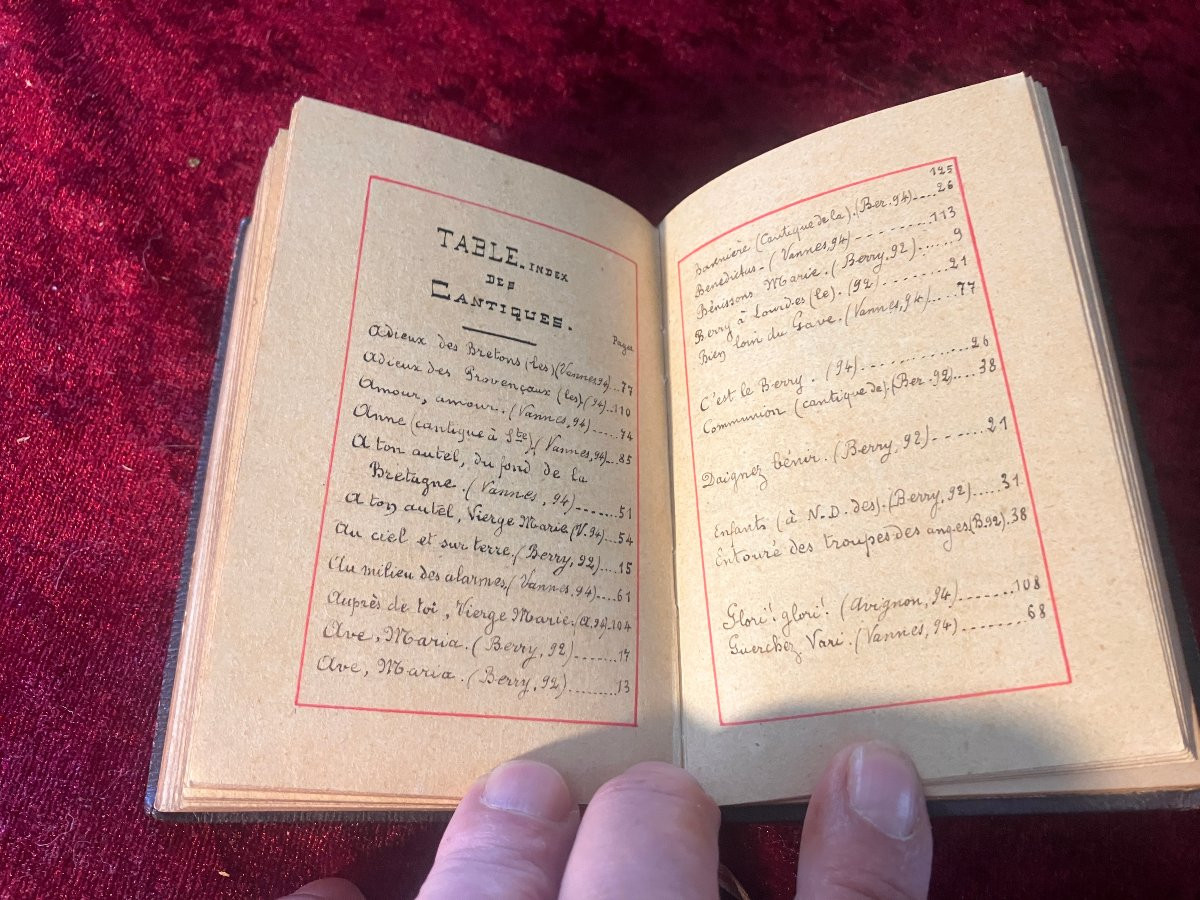 TABLE. INDEX
DES
CANTIQUES.
Pages
Adieux des Bretons (les) (Vannes 94)..77
Adieux des Provençaux (les) (94)..110
Amour, amour. (Vannes, 94).....74
Anne (cantique à Ste) (Vannes, 94)..85
A ton autel, du fond de la
Bretagne. (Vannes, 94).....51
A ton autel, Vierge Marie (V. 94)...54
Au ciel et sur terre. (Berry, 92)....15
Au milieu des alarmes. (Vannes. 94)....61
Auprès de toi, Vierge Marie. (A. 94)..104
Ave, Maria. (Berry, 92).......17
Ave, Maria. (Berry, 92).........13
125
Bannière (Cantique de la). (Ber. 94)....26
Benedictus. (Vannes, 94)..........113
Bénissons Marie. (Berry, 92)......9
Berry à Lourdes (le). (92)..........21
Bien loin du Gave. (Vannes, 94)....77
C'est le Berry. (94)............26
Communion (cantique de). (Ber. 92)....38
Daignez bénir. (Berry, 92).......21
Enfants (à N.D. des). (Berry, 92).....31
Entouré des troupes des anges (B 92). 38
Glori! glori! (Avignon, 94)........108
Guerchez Vari. (Vannes, 94).......68